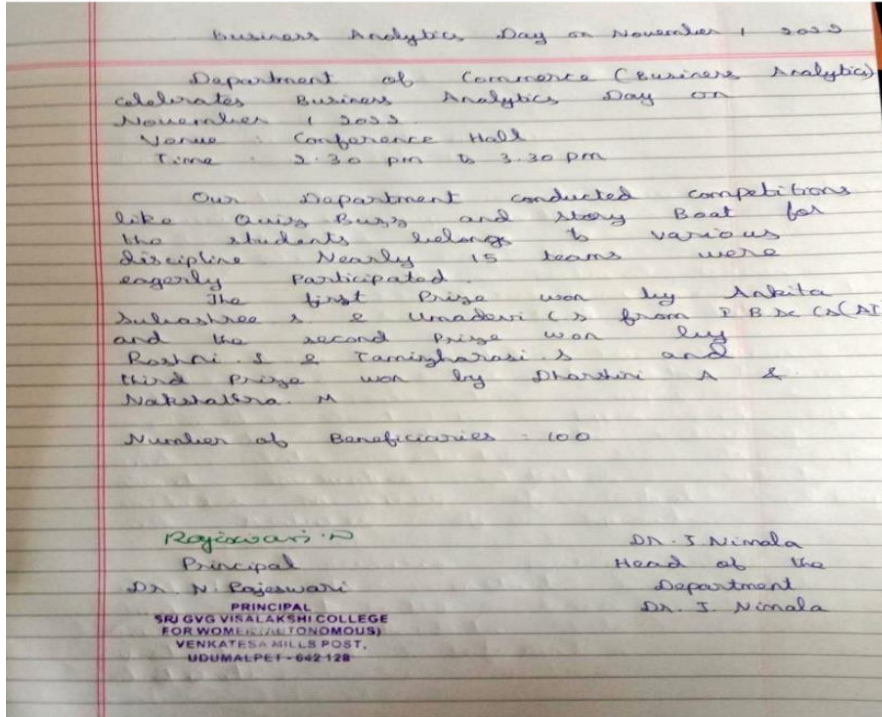 Business Analytics Day on November 1 2022
Department of Commerce (Business Analytics)
celebrates Business Analytics Day on
November 1 2022.
Venue : Conference Hall
Time : 2.30 pm to 3.30 pm
Our Department conducted competitions
like Quiz Buzz and Story Boat for
the students belongs to various
discipline Nearly 15 teams were
eagerly Participated.
The first Prize won by Ankita
Subashree S & Umadevi C S from I B Sc CS(AI
and the second Prize won by
Roshni. S & Tamizharasi. S and
third Prize won by Dharshini A &
Nakshathra. M
Number of Beneficiaries : 100
Rajeswari. N
Dr. J Nirmala
Principal
Head of the
Dr. N. Rajeswari
Department
Dr. J. Nirmala
PRINCIPAL
SRI GVG VISALAKSHI COLLEGE
FOR WOMEN (AUTONOMOUS)
VENKATESA MILLS POST,
UDUMALPET - 642 128